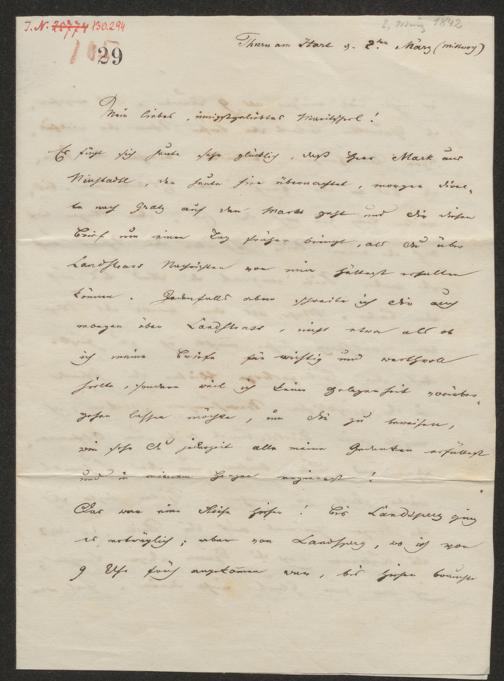 J. N. 20774 130.294
105
29
2. März 1842
Thurn am Hart d. 2ten März (Mittwoch)
Mein liebes, innigstgeliebtes Mariischerl!
Es fügt sich heute sehr glücklich, daß Herr Mark aus
Neustadtl, der heute hier übernachtet, morgen direc-
te nach Gratz auf den Markt geht und Dir diesen
Brief um einen Tag früher bringt, als Du über
Landstrass Nachrichten von mir hättest erhalten
können. Jedenfalls aber schreibe ich Dir auch
morgen über Landstrass, nicht etwa als ob
ich meine Briefe für wichtig und werthvoll
hielte, sondern weil ich keine Gelegenheit vorüber-
gehen lassen möchte, um Dir zu beweisen,
wie sehr Du jederzeit alle meine Gedanken erfüllest
und in meinem Herzen regierest!
Das war eine Reise hieher! Bis Landsperg ging
es erträglich; aber von Landsperg, wo ich vor
9 Uhr früh angekommen war, bis hieher brauchte